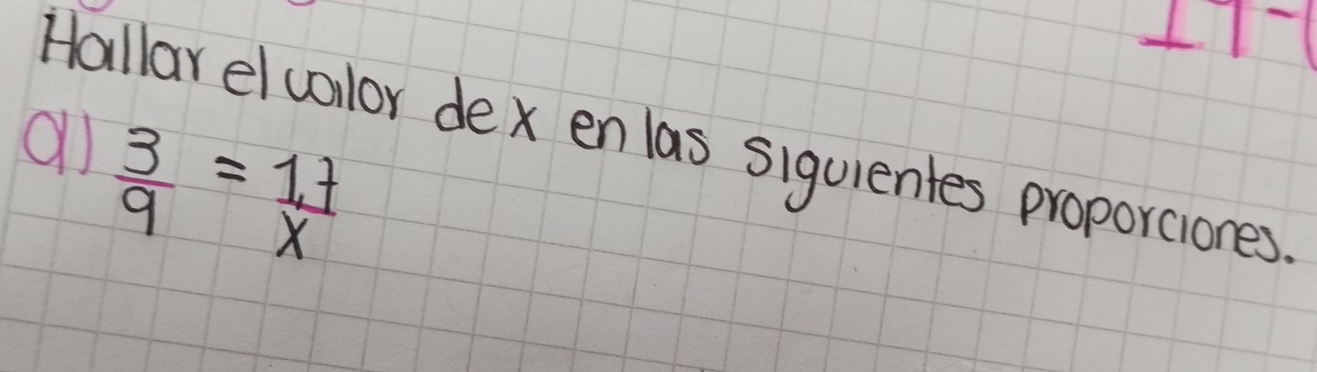 Hallar el valor de x en las siguientes proporciones.
a) 3/9 = 1,7/x